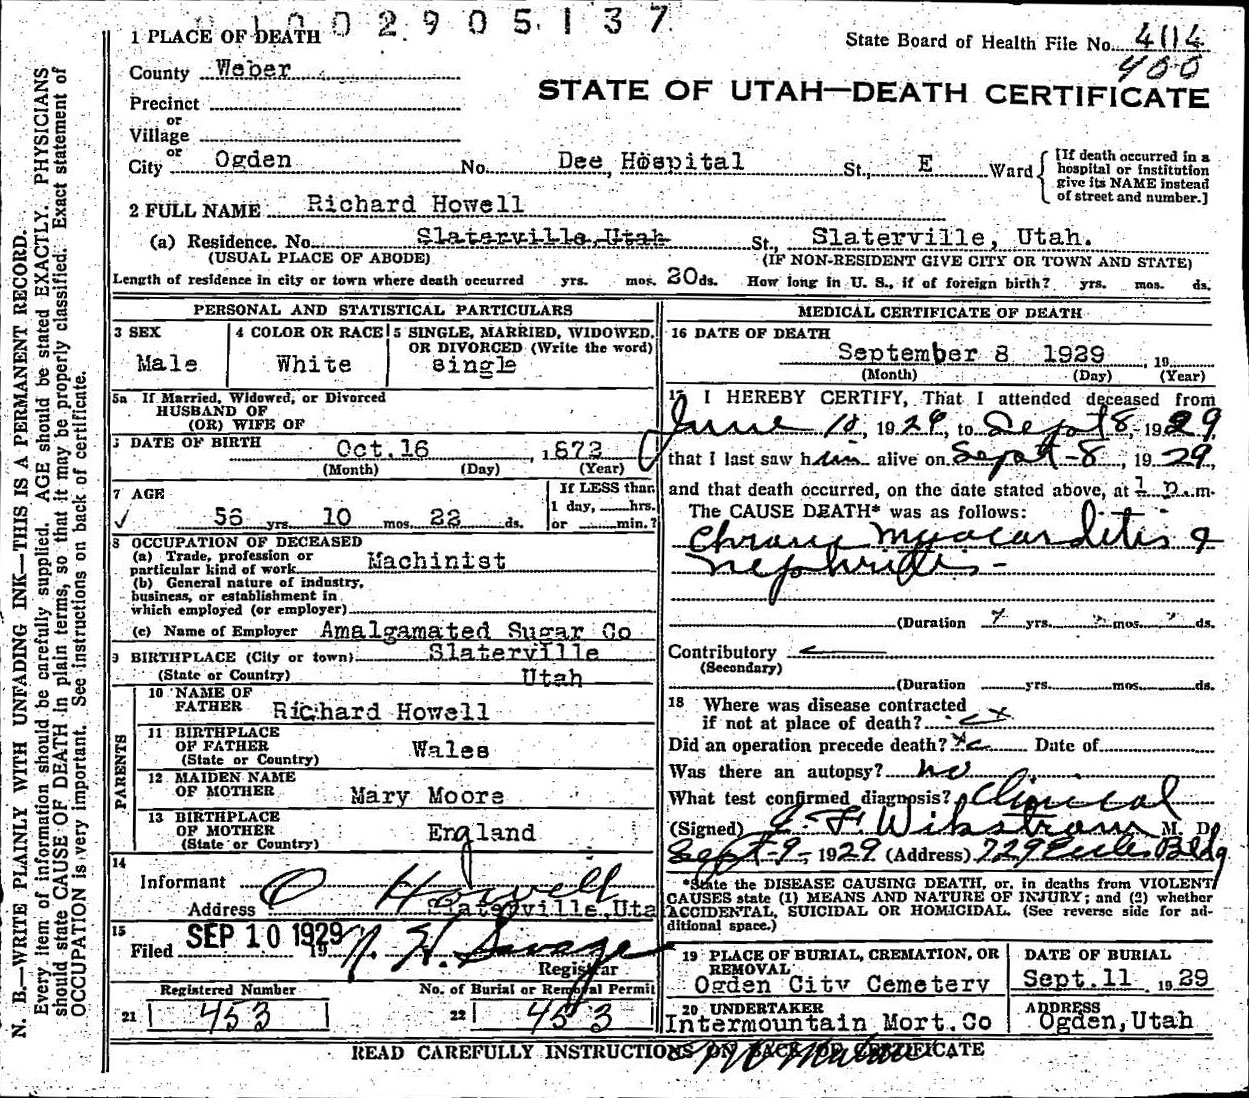 0 0 2 9 0 5 1 3 7
1 PLACE OF DEATH
State Board of Health File No. 4114
400
County Weber
STATE OF UTAH—DEATH CERTIFICATE
Precinct
or
Village
or
City Ogden No. Dee Hospital St., E Ward
[If death occurred in a hospital or institution give its NAME instead of street and number.]
2 FULL NAME Richard Howell
(a) Residence. No. Slaterville, Utah St., Slaterville, Utah.
(USUAL PLACE OF ABODE) (IF NON-RESIDENT GIVE CITY OR TOWN AND STATE)
Length of residence in city or town where death occurred yrs. mos. 20 ds. How long in U. S., if of foreign birth? yrs. mos. ds.
PERSONAL AND STATISTICAL PARTICULARS
3 SEX
Male
4 COLOR OR RACE
White
5 SINGLE, MARRIED, WIDOWED, OR DIVORCED (Write the word)
single
5a If Married, Widowed, or Divorced
HUSBAND OF
(OR) WIFE OF
DATE OF BIRTH Oct.16 , 1872
(Month) (Day) (Year)
7 AGE
56 yrs. 10 mos. 22 ds.
If LESS than
1 day, hrs.
or min.?
8 OCCUPATION OF DECEASED
(a) Trade, profession or
particular kind of work Machinist
(b) General nature of industry,
business, or establishment in
which employed (or employer)
(c) Name of Employer Amalgamated Sugar Co
9 BIRTHPLACE (City or town) Slaterville
(State or Country) Utah
PARENTS
10 NAME OF
FATHER Richard Howell
11 BIRTHPLACE
OF FATHER Wales
(State or Country)
12 MAIDEN NAME
OF MOTHER Mary Moore
13 BIRTHPLACE
OF MOTHER England
(State or Country)
14
Informant O Howell
Address Slaterville, Uta
15
Filed SEP 10 1929 19 N. H. Savage
Registrar
Registered Number No. of Burial or Removal Permit
21 453 22 453
MEDICAL CERTIFICATE OF DEATH
16 DATE OF DEATH
September 8 1929 , 19
(Month) (Day) (Year)
17 I HEREBY CERTIFY, That I attended deceased from
June 10, 1929, to Sept 8, 1929
that I last saw him alive on Sept-8, 1929,
and that death occurred, on the date stated above, at 1 m.
The CAUSE DEATH* was as follows:
Chronic myocarditis &
Nephritis -
(Duration ? yrs. ? mos. ? ds.
Contributory
(Secondary)
(Duration yrs. mos. ds.
18 Where was disease contracted
if not at place of death?
Did an operation precede death? Date of
Was there an autopsy? no
What test confirmed diagnosis? Clinical
(Signed) Wikstrom M. D.
Sept-9, 1929 (Address) 729 Eccles Bldg
*State the DISEASE CAUSING DEATH, or, in deaths from VIOLENT
CAUSES state (1) MEANS AND NATURE OF INJURY; and (2) whether
ACCIDENTAL, SUICIDAL OR HOMICIDAL. (See reverse side for ad-
ditional space.)
19 PLACE OF BURIAL, CREMATION, OR
REMOVAL
Ogden City Cemetery
DATE OF BURIAL
Sept.11 1929
20 UNDERTAKER
Intermountain Mort.Co
ADDRESS
Ogden,Utah
READ CAREFULLY INSTRUCTIONS ON BACK OF CERTIFICATE
N. B.—WRITE PLAINLY WITH UNFADING INK—THIS IS A PERMANENT RECORD.
Every item of information should be carefully supplied. AGE should be stated EXACTLY. PHYSICIANS
should state CAUSE OF DEATH in plain terms, so that it may be properly classified. Exact statement of
OCCUPATION is very important. See instructions on back of certificate.